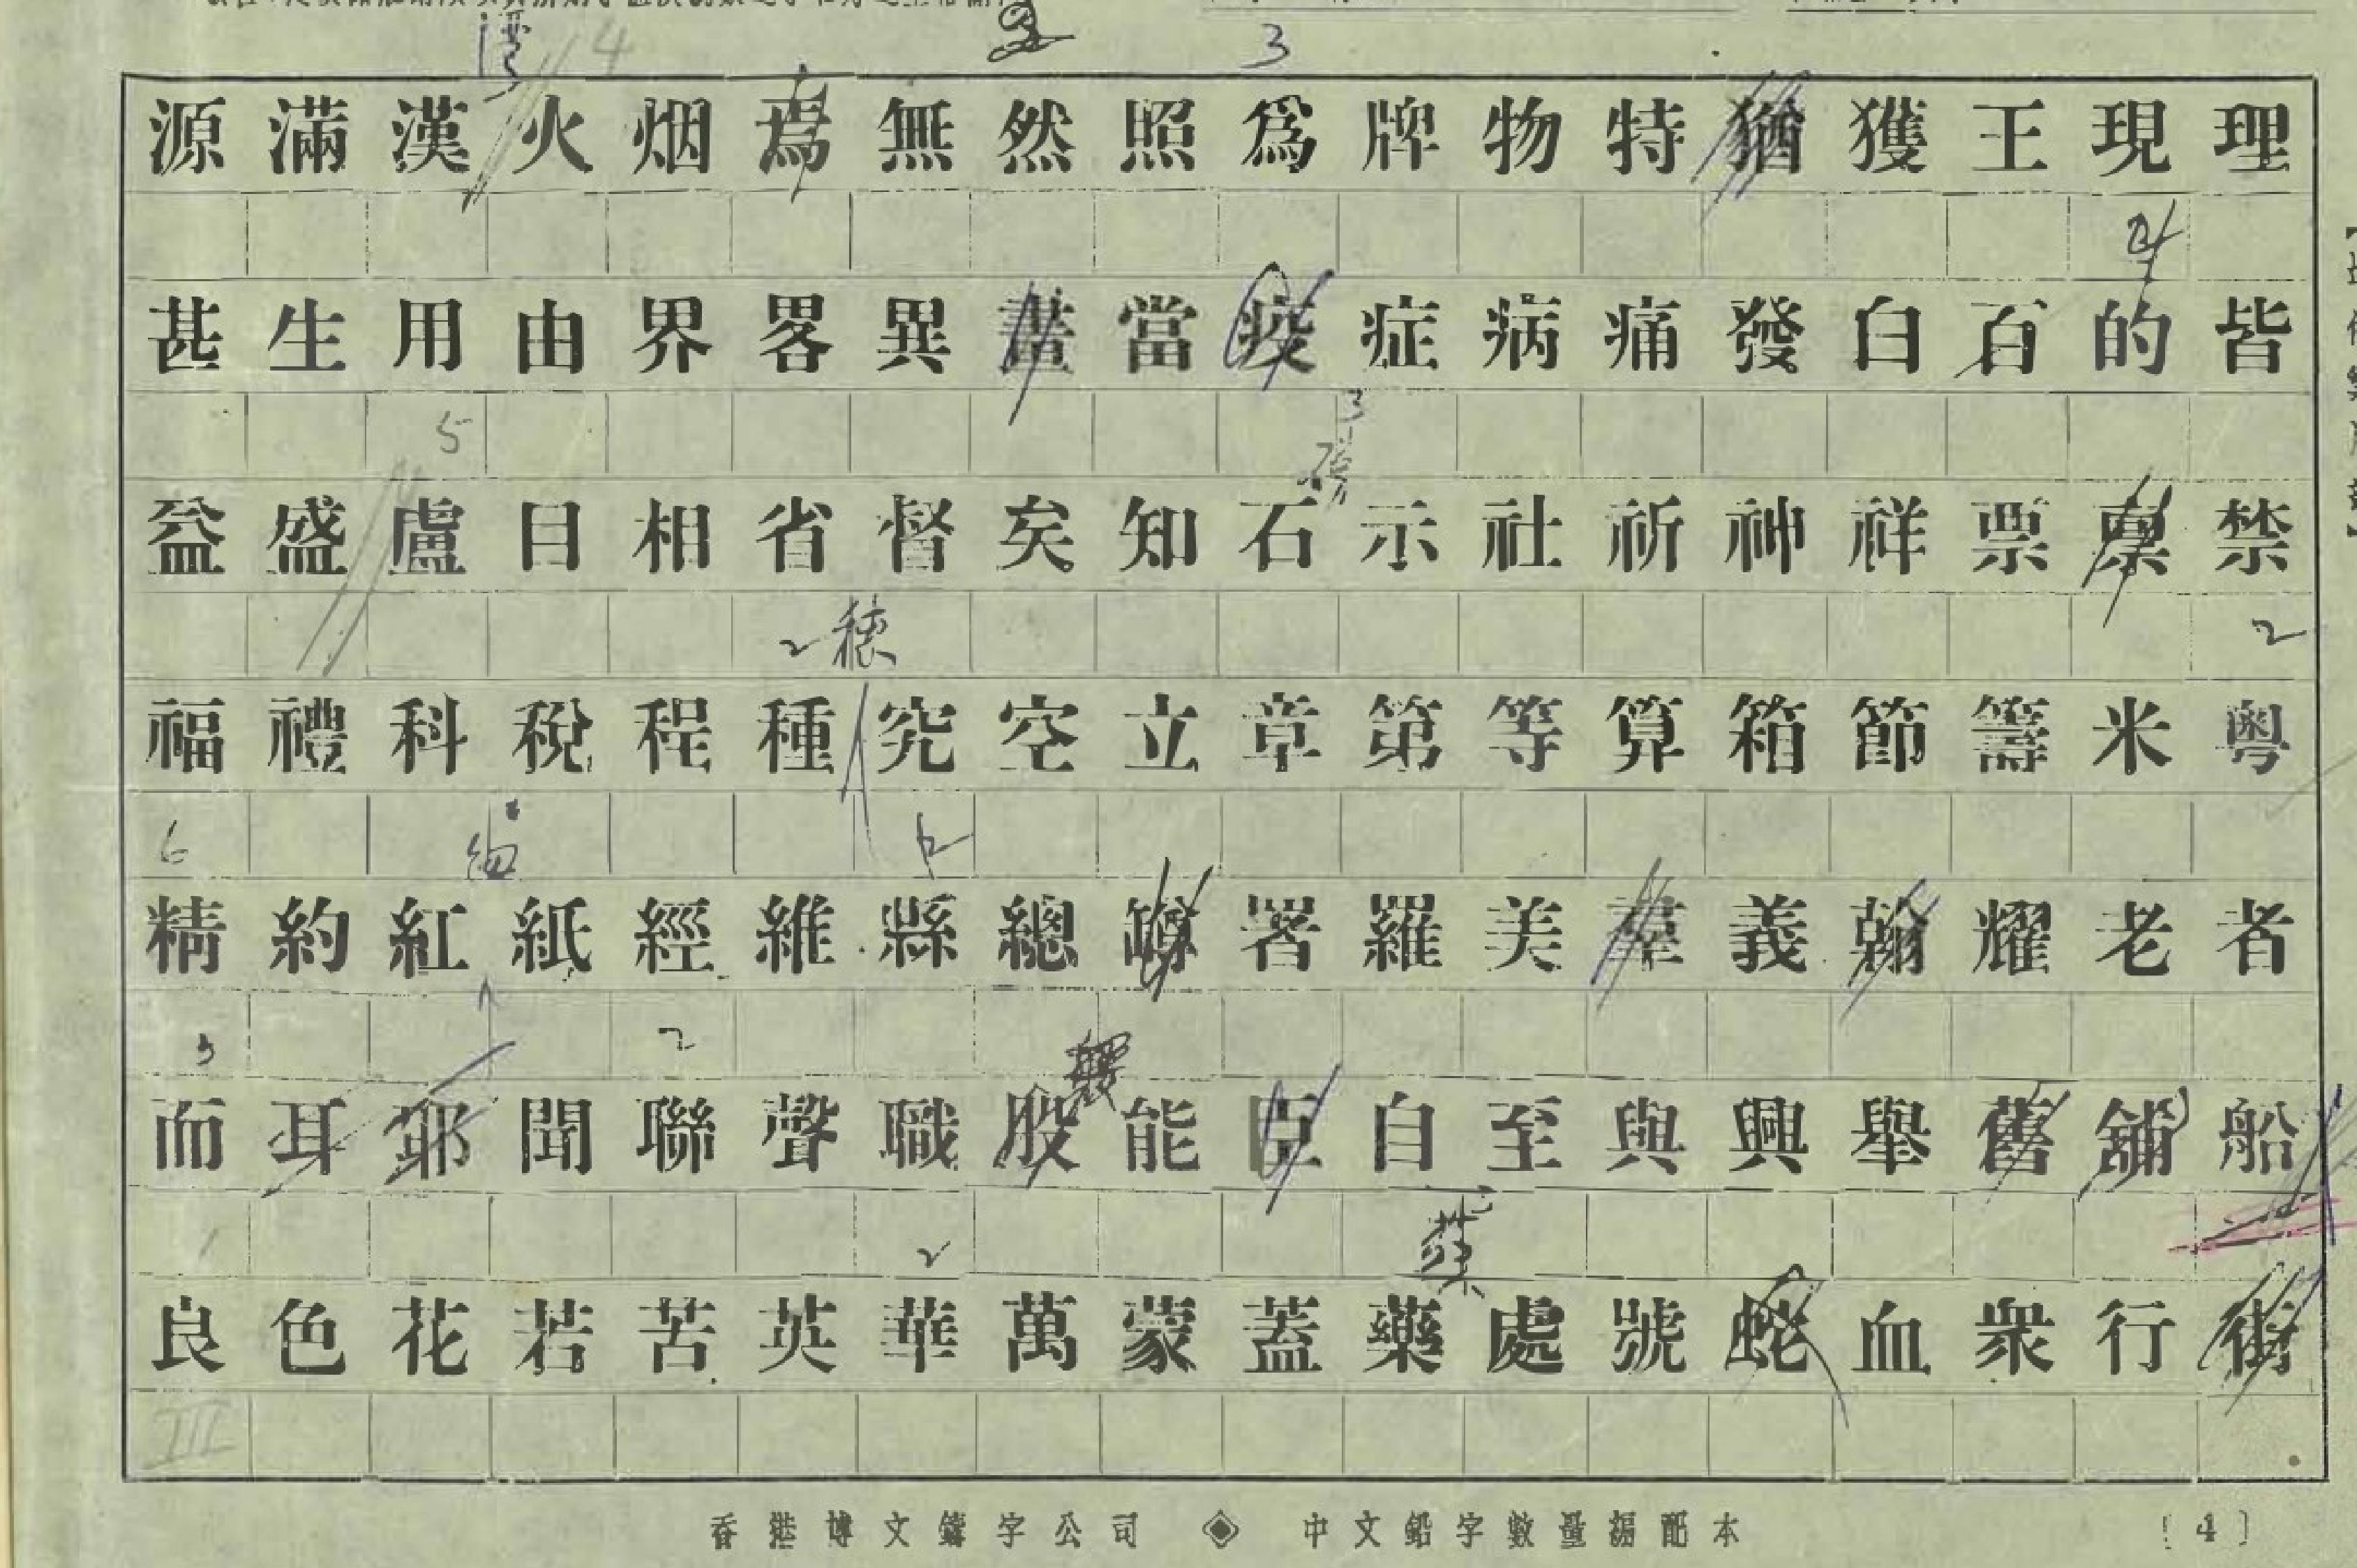 3
源滿漢火烟焉無然照為牌物特猶獲王現理
甚生用由界畧異畫當疫症病痛發白百的皆
5
3
益盛盧目相省督矣知石示社祈神祥票稟禁
2 穗
2
福禮科稅程種究空立章第等算箱節籌米粵
6
精約紅紙經維縣總罇署羅美羣義翰耀老者
3
2
而耳耶聞聯聲職股能臣自至與興舉舊舖船
良色花若苦英華萬蒙蓋藥處號蛇血衆行街
III
香港博文鑄字公司 ◈ 中文鉛字數量搊配本
[4]